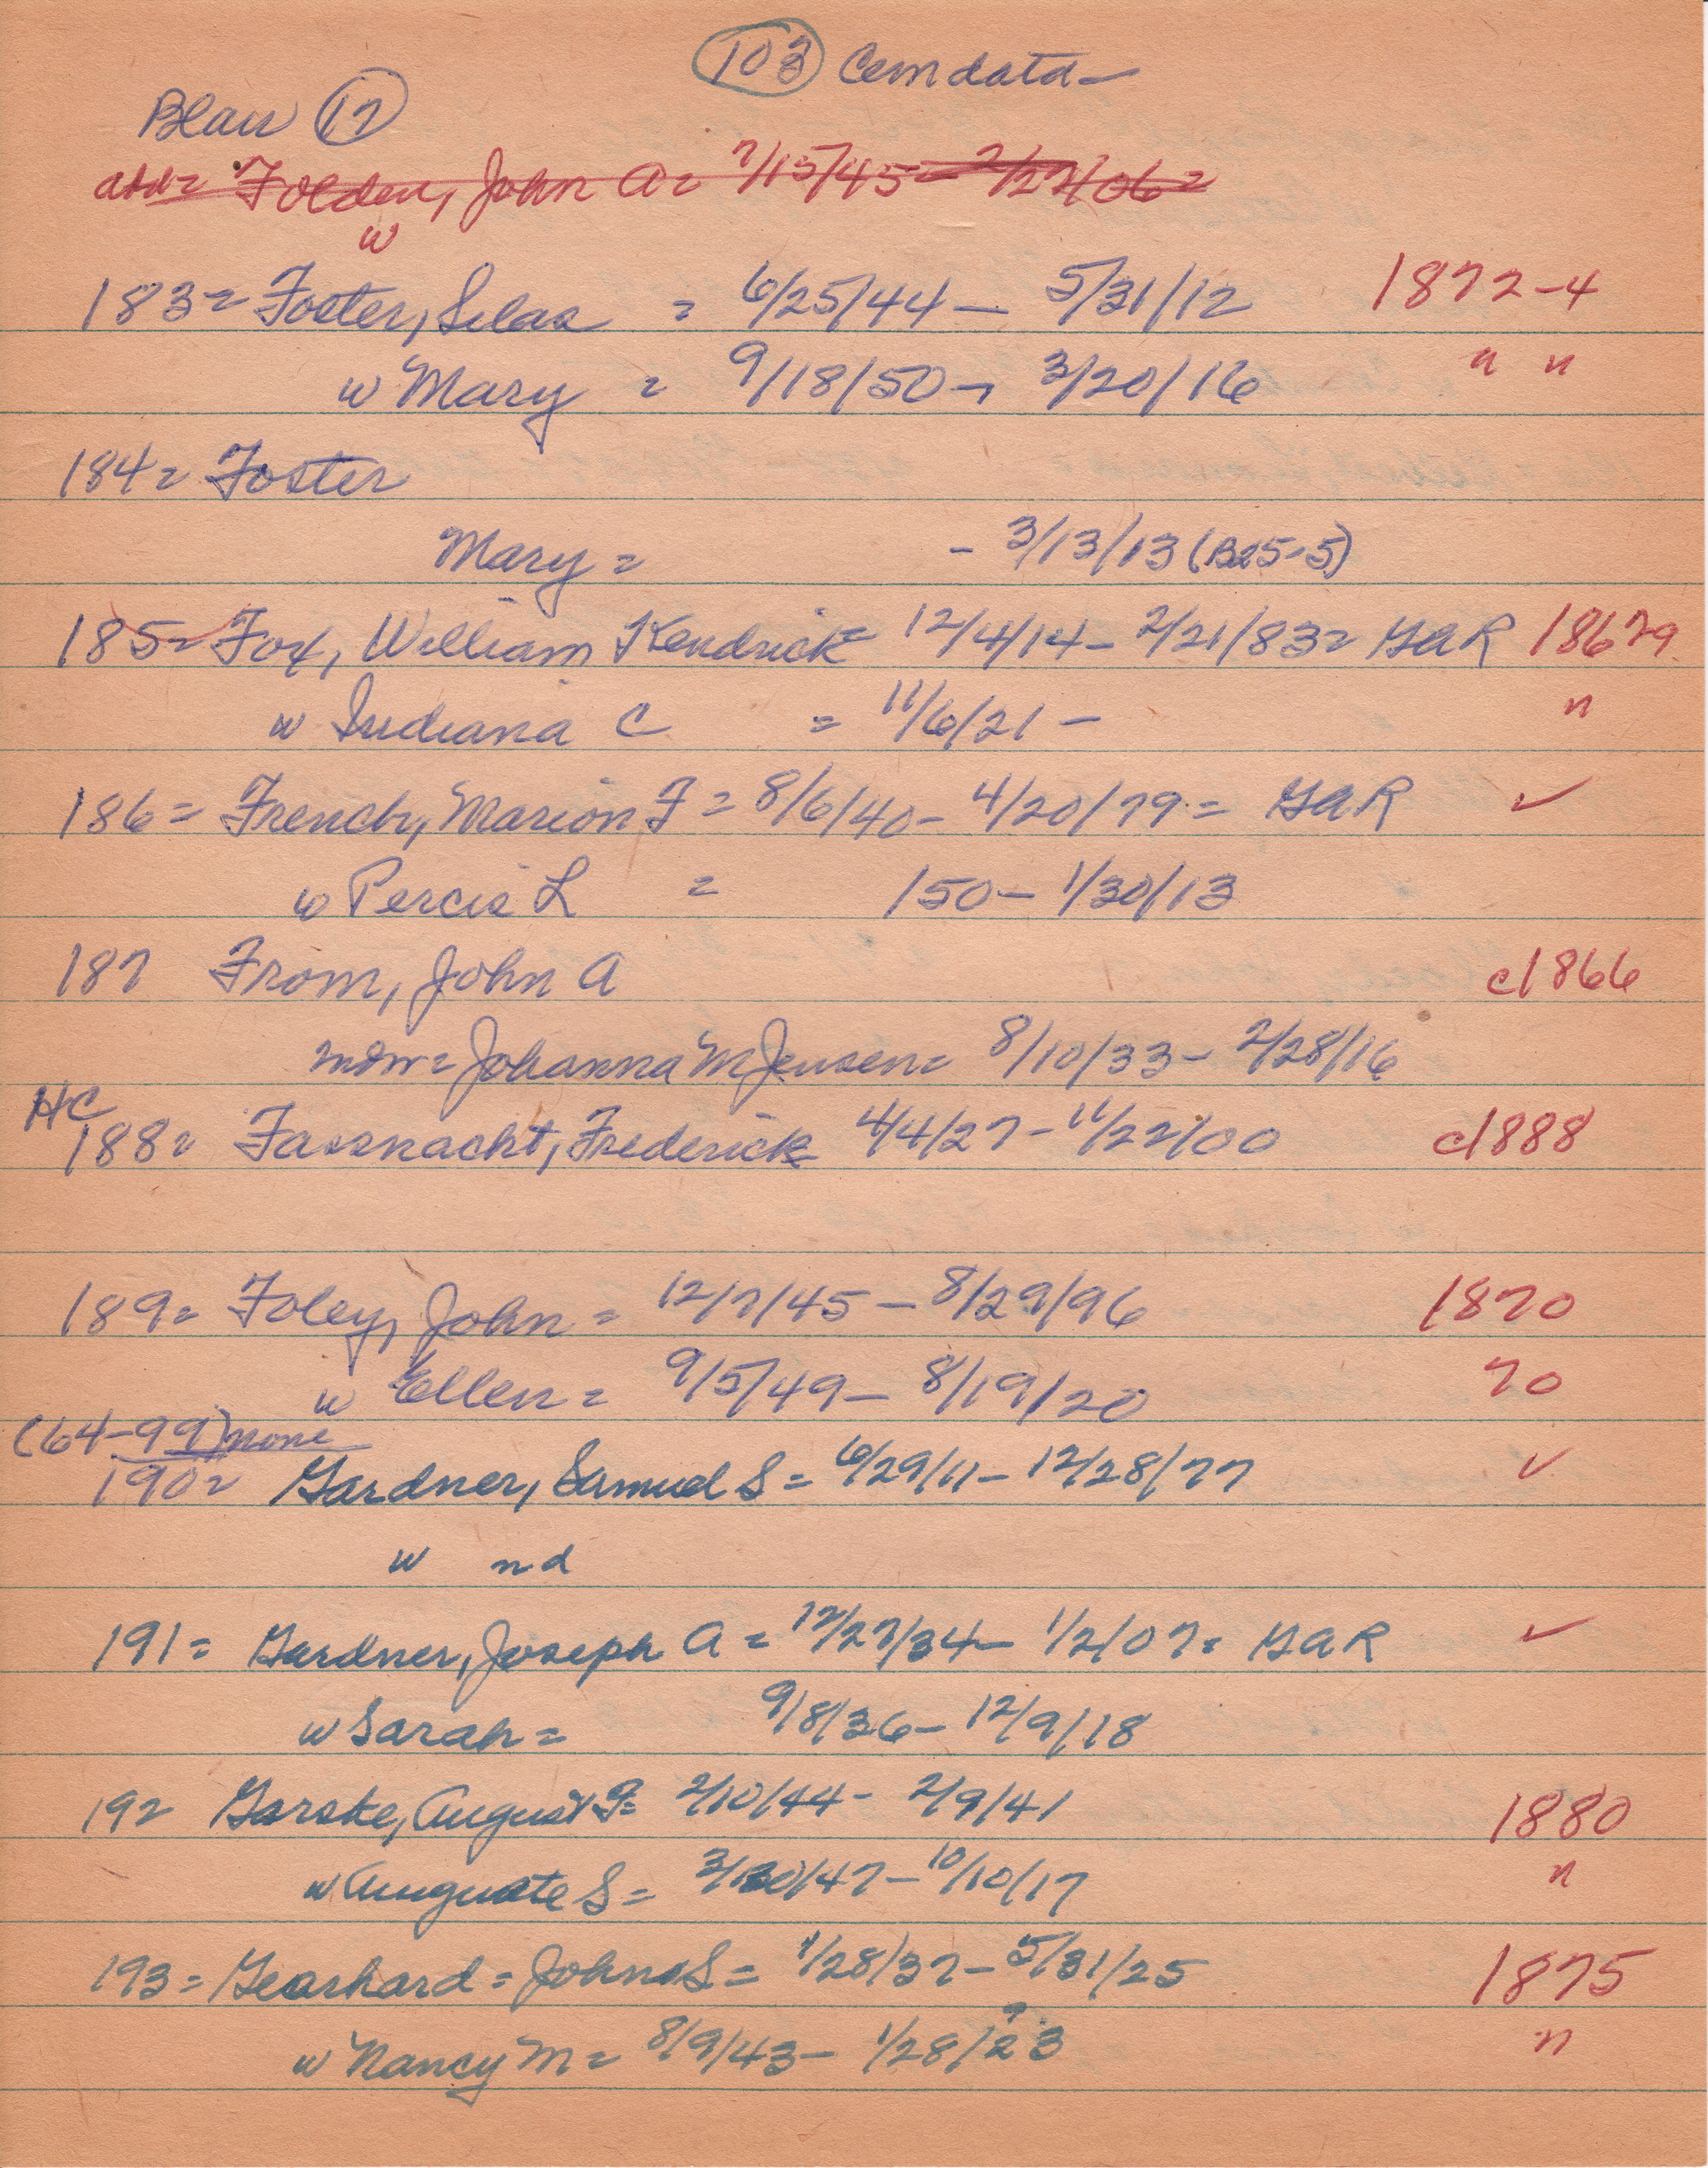 103 Cemdata-
Blair 17
add= Folden, John A= 7/15/45 - 2/27/06=
w
183= Foster, Silas = 6/25/44 - 5/31/12 1872-4
w Mary = 9/18/50 - 3/20/16 " "
184= Foster
Mary = - 3/13/13 (B25-5)
185= Fox, William Kendrick= 12/4/14- 2/21/83= GAR 1867
w Indiana C = 11/6/21 - "
186= French, Marion F = 8/6/40- 4/20/79= GAR ✓
w Percis L = /50- 1/30/13
187 From, John A c1866
mdw= Johanna M Jensen= 8/10/33- 2/28/16
HC
188= Fassnacht, Frederick 4/4/27- 11/22/00 c1888
189= Foley, John = 12/7/45 - 8/29/96 1870
w Ellen = 9/5/49- 8/19/20 70
(64-99) none
190= Gardner, Samuel S= 6/29/11- 12/28/77 ✓
w nd
191= Gardner, Joseph A = 12/27/34- 1/2/07= GAR ✓
w Sarah= 9/8/36- 12/9/18
192 Garske, August F= 2/10/44- 2/9/41 1880
w Auguste S= /47- 10/10/17 "
193= Gearhard= John S= 1/28/37- 5/31/25 1875
?
w Nancy M= 8/9/43- 1/28/23 "